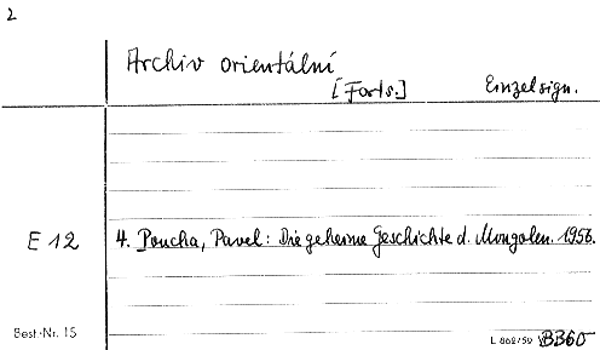 2
Archiv orientální
[Forts.]
Einzelsign.
E 12
4. Poucha, Pavel: Die geheime Geschichte d. Mongolen. 1956.
Best.-Nr. 15
L 802/59
BB60